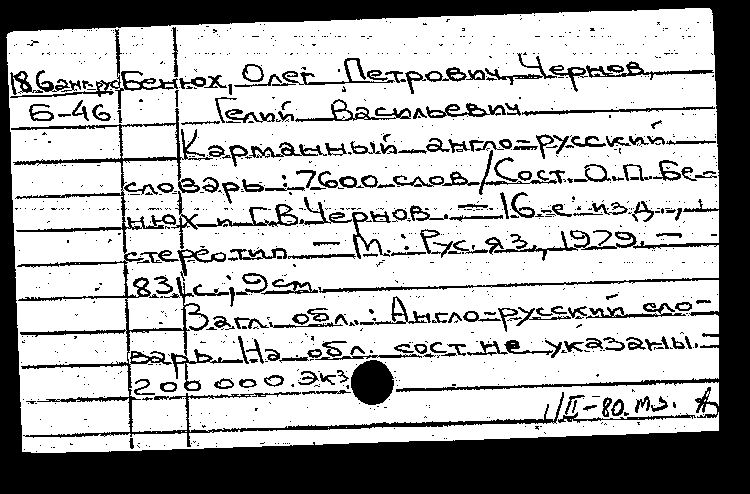 186анг-рус Бенюх, Олег Петрович, Чернов,
Б-46 Гелий Васильевич
Карманный англо-русский
словарь : 7600 слов / Сост. О.П. Бе-
нюх и Г.В. Чернов. - 16-е изд.,
стереотип - М. : Рус. яз., 1979. -
831 с.; 9 см.
Загл. обл.: Англо-русский сло-
варь. На обл. сост. не указаны. -
200 000. экз
II-80.